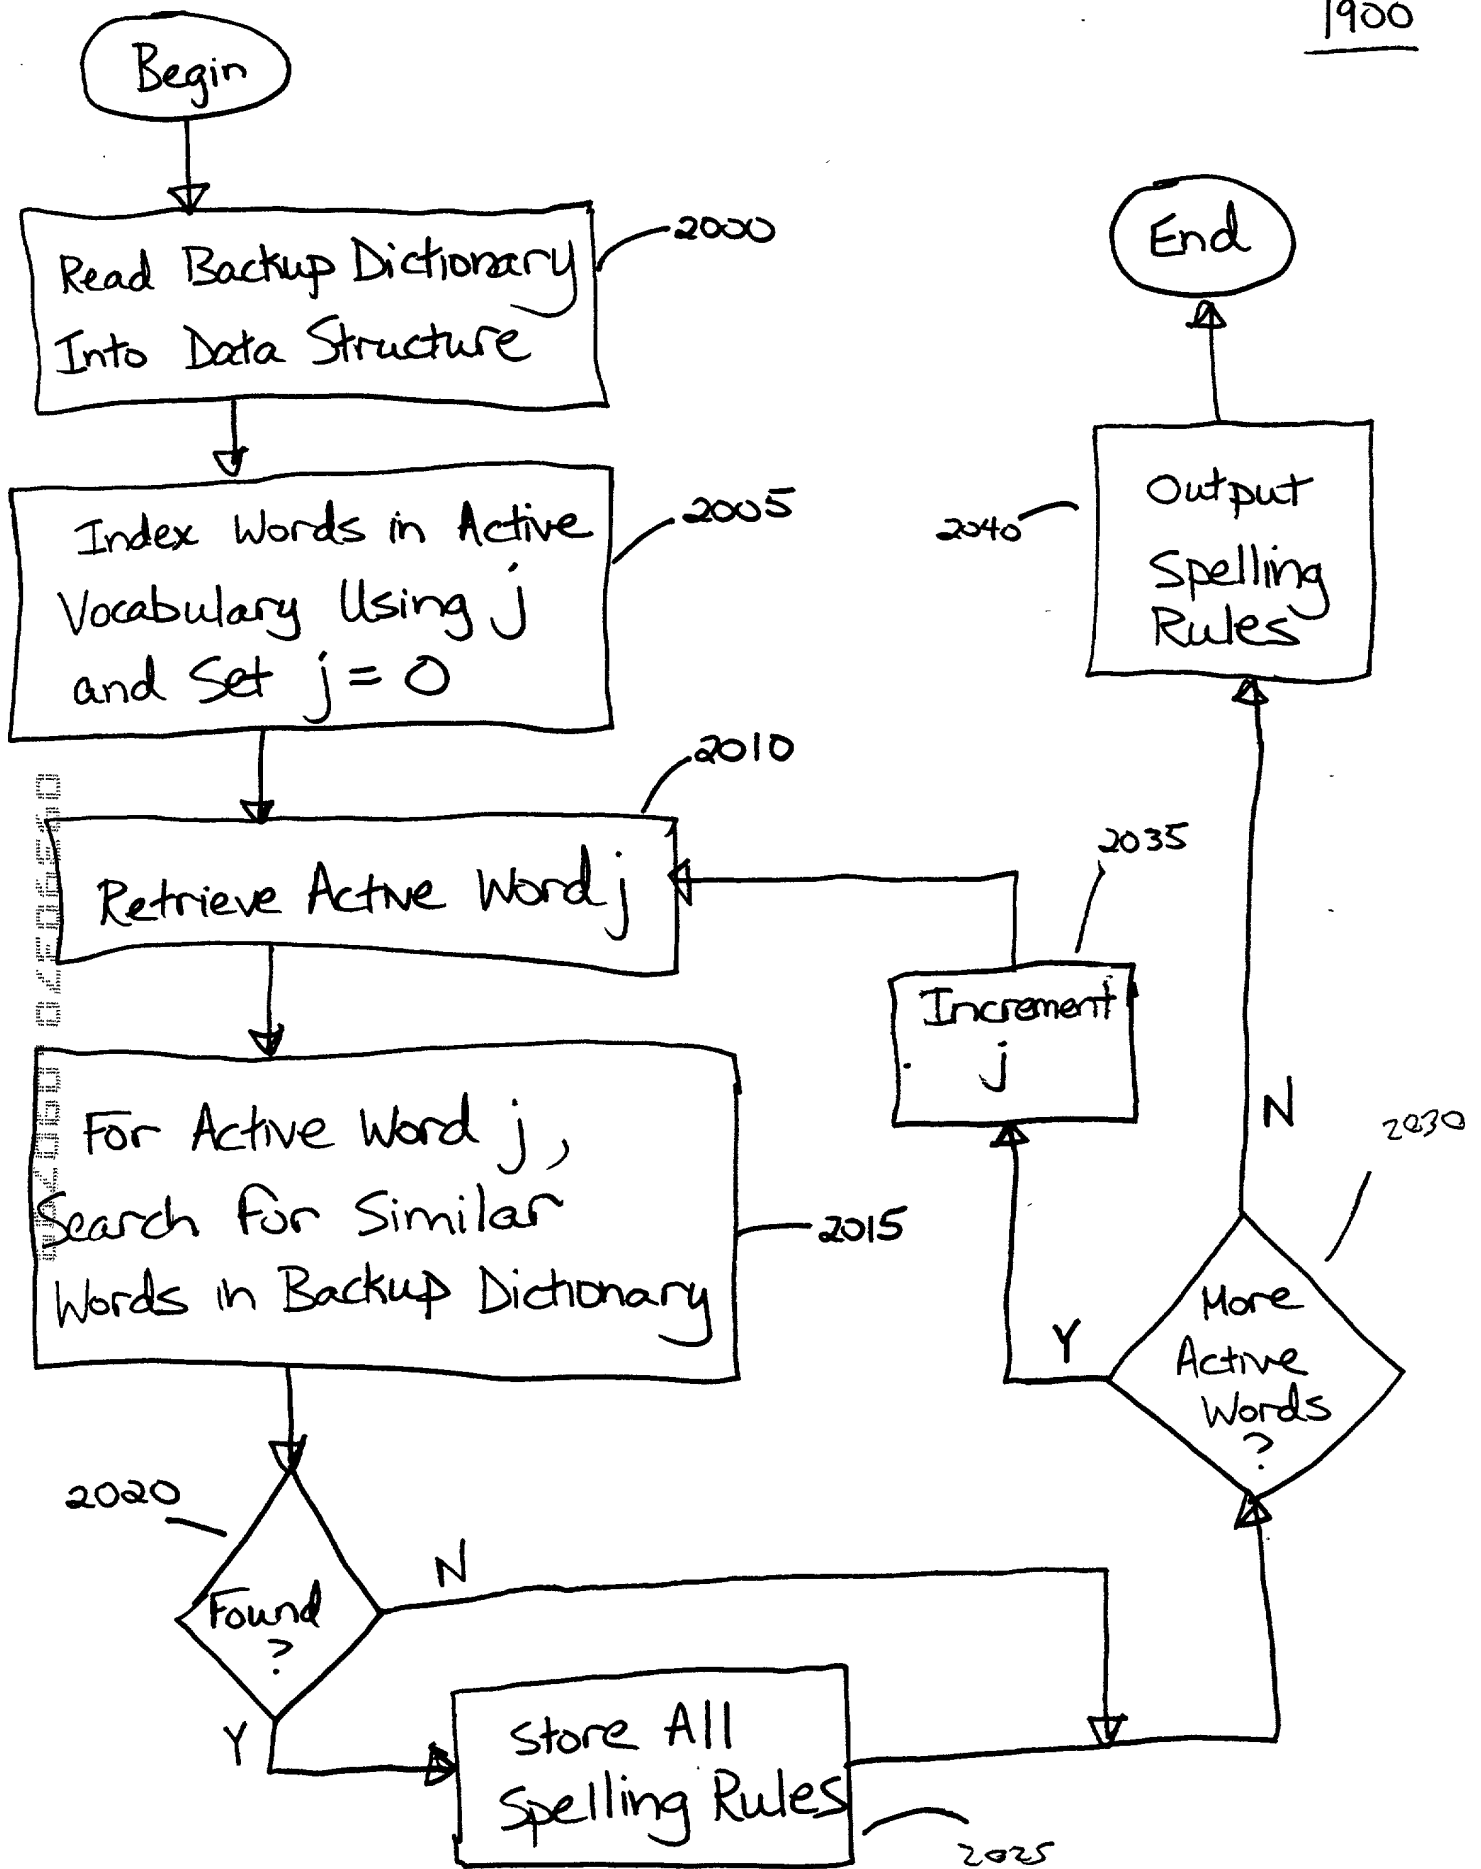 1900
Begin
2000
Read Backup Dictionary
Into Data Structure
2005
Index Words in Active
Vocabulary Using j
and Set j = 0
2010
Retrieve Active Word j
2015
For Active Word j,
Search for Similar
Words in Backup Dictionary
2020
Found
?
N
Y
Store All
Spelling Rules
2025
2030
More
Active
Words
?
Y
N
2035
Increment
j
2040
Output
Spelling
Rules
End